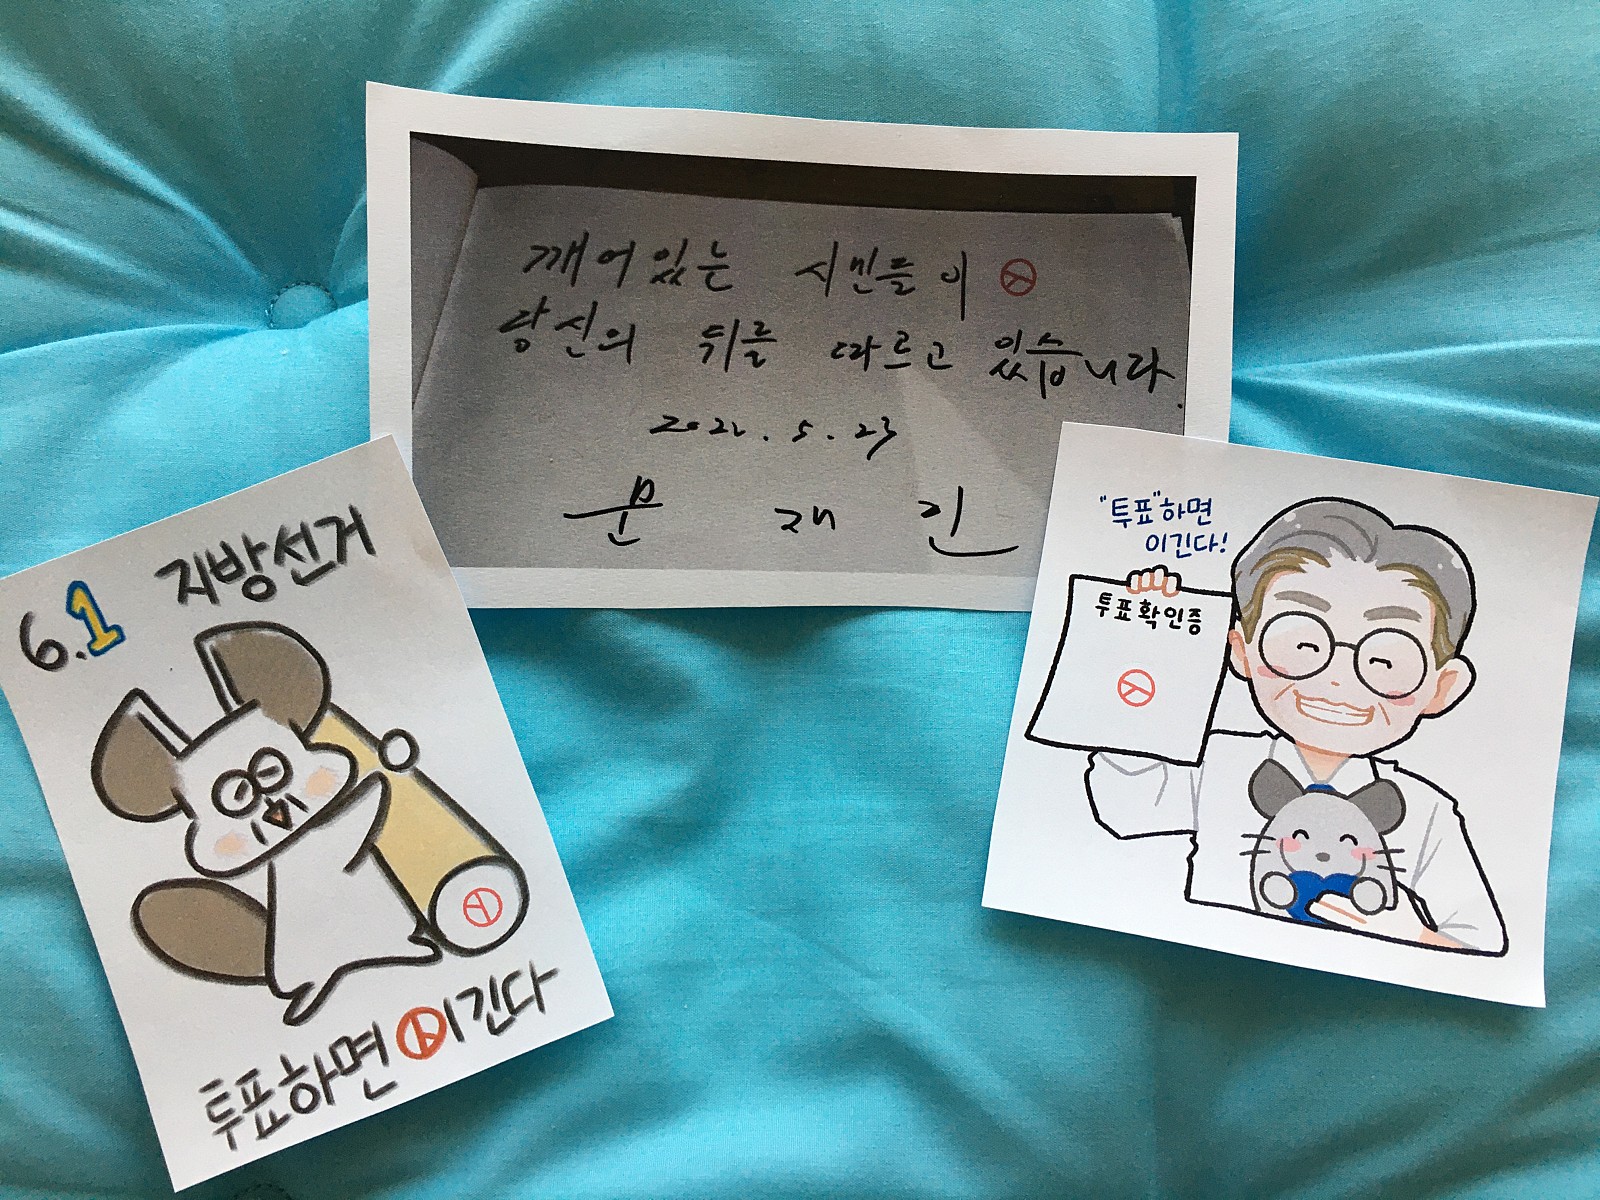 깨어있는 시민들이
당신의 뒤를 따르고 있습니다.
2022. 5. 23
문 재 인
6.1 지방선거
투표하면 이긴다
"투표"하면
이긴다!
투표확인증